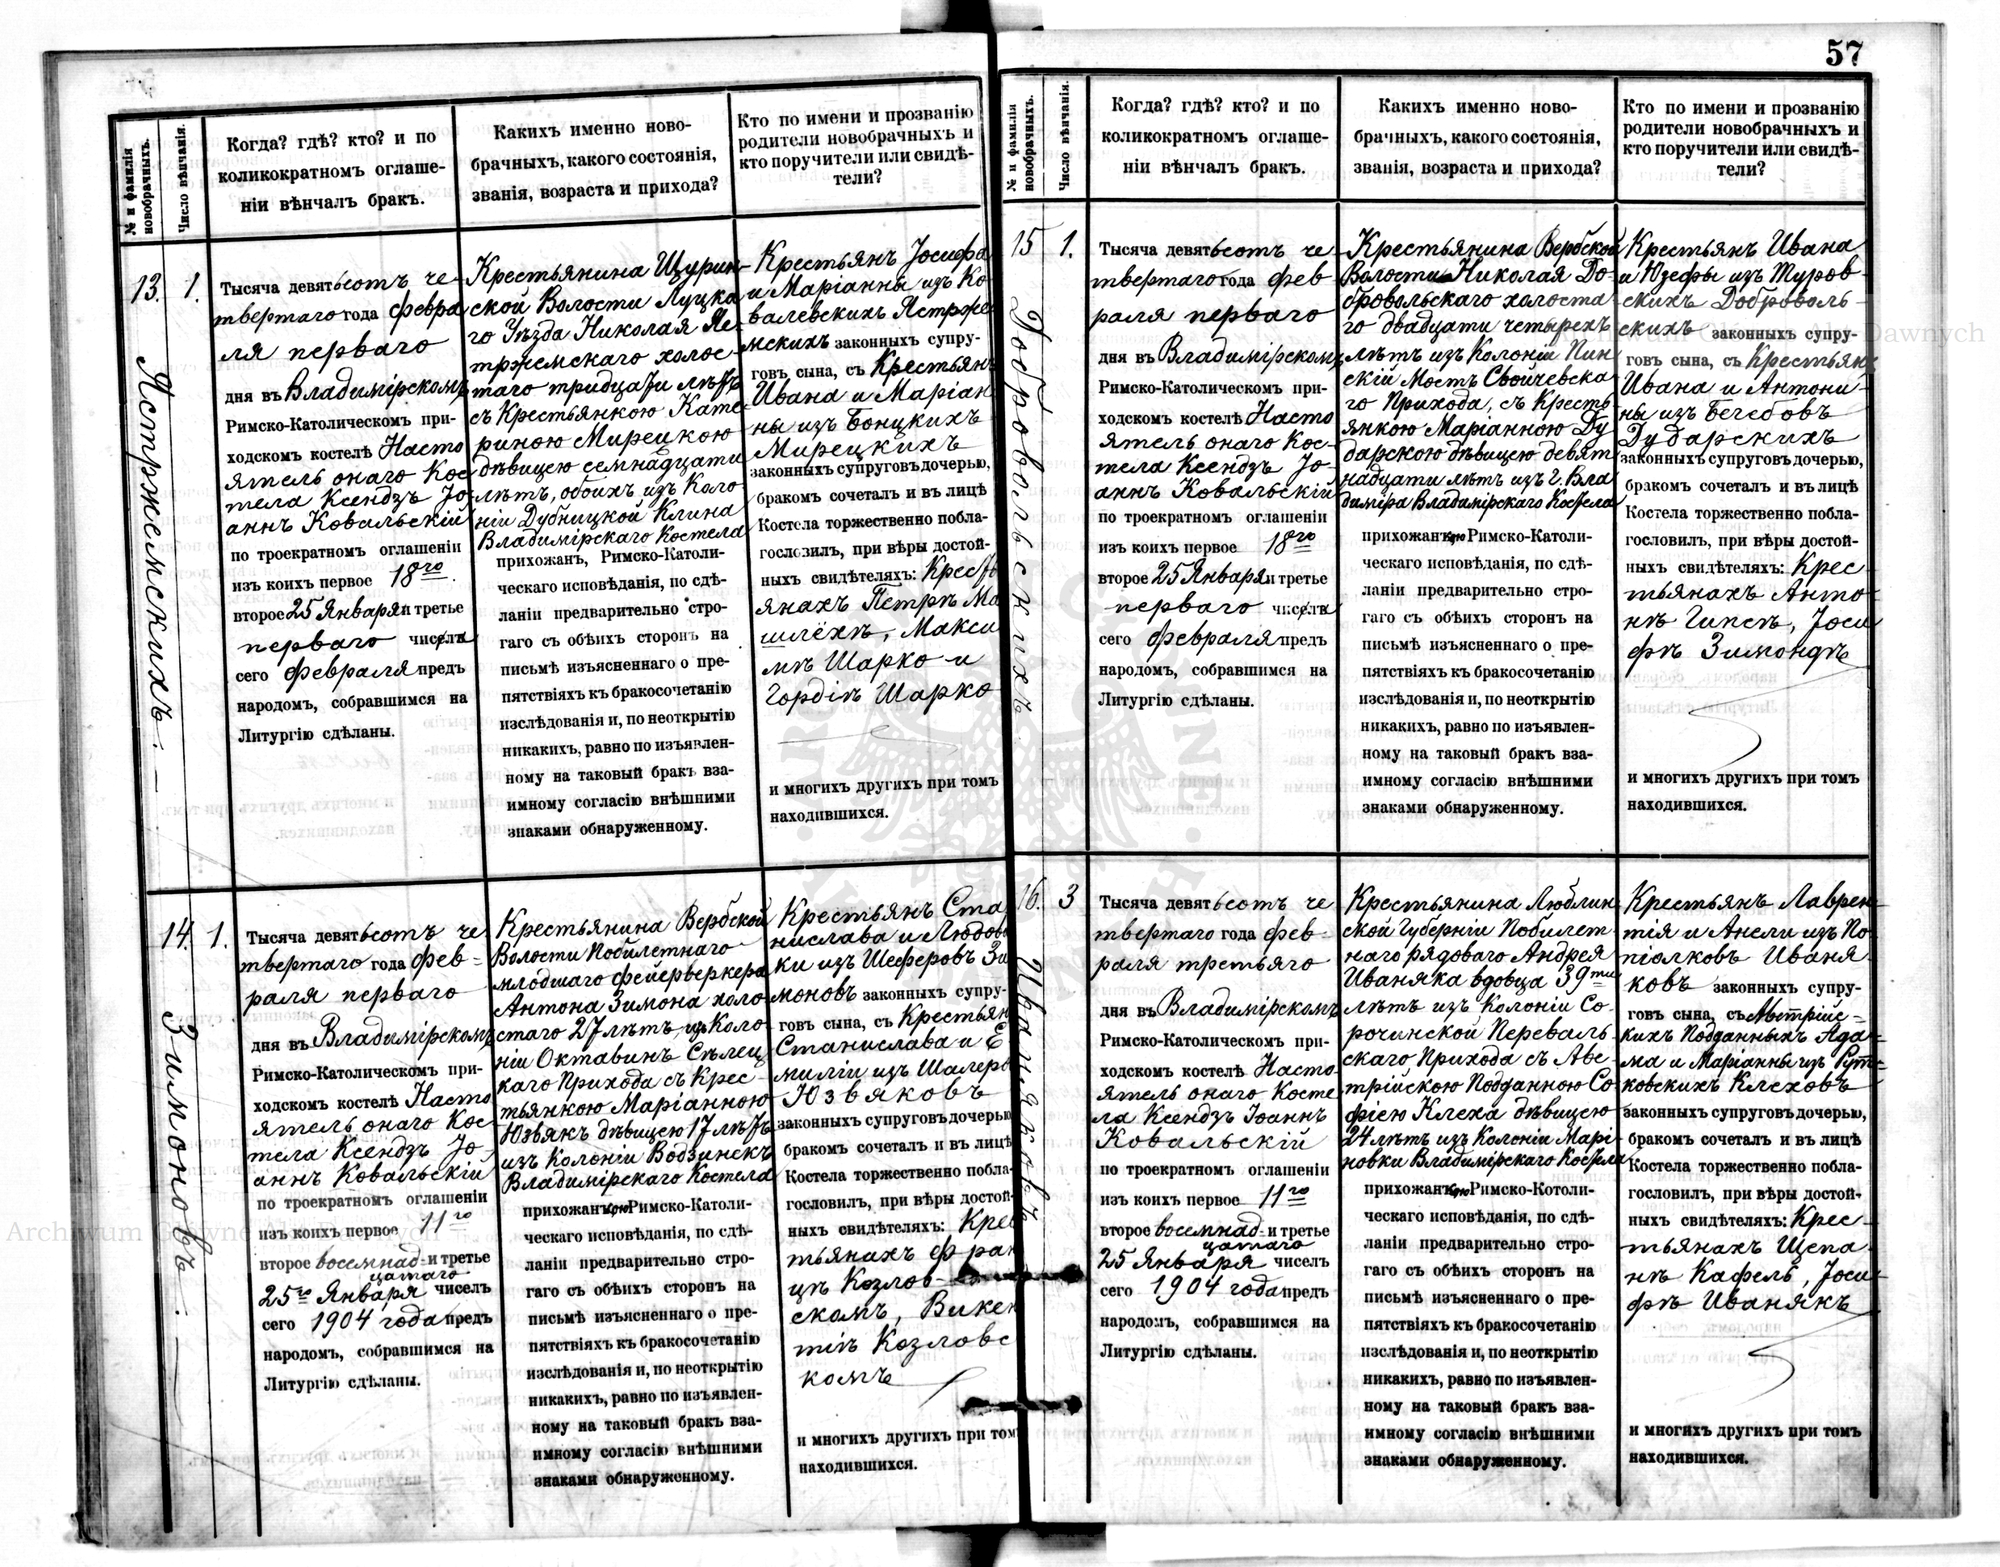 57
№ и фамилія новобрачныхъ.
Число вѣнчанія.
Когда? гдѣ? кто? и по
коликократномъ оглаше-
ніи вѣнчалъ бракъ.
Какихъ именно ново-
брачныхъ, какого состоянія,
званія, возраста и прихода?
Кто по имени и прозванію
родители новобрачныхъ и
кто поручители или свидѣ-
тели?
13.
1.
Ястржемскихъ. —
Тысяча девятьсотъ че-
твертаго года февра
ля перваго
дня въ Владимірскомъ
Римско-Католическомъ при-
ходскомъ костелѣ Насто
ятель онаго Кос-
тела Ксендзъ Іо-
аннъ Ковальскій
по троекратномъ оглашеніи
изъ коихъ первое 18го
второе 25 Января и третье
перваго числа
сего февраля предъ
народомъ, собравшимся на
Литургію сдѣланы.
Крестьянина Щурин-
ской Волости Луцка
го Уѣзда Николая Яс-
тржемскаго холос-
таго тридцати лѣтъ
съ Крестьянкою Кате-
риною Мирецкою
дѣвицею семнадцати
лѣтъ, обоихъ изъ Коло
ніи Дубницкой Клина
Владимірскаго Костела
прихожанъ, Римско-Католи-
ческаго исповѣданія, по сдѣ-
ланіи предварительно стро-
гаго съ обѣихъ сторонъ на
письмѣ изъясненнаго о пре-
пятствіяхъ къ бракосочетанію
изслѣдованія и, по неоткрытію
никакихъ, равно по изъявлен-
ному на таковый бракъ вза-
имному согласію внѣшними
знаками обнаруженному.
Крестьянъ Іосифа
и Маріанны изъ Ко
валевскихъ Ястрже
мскихъ законныхъ супру-
говъ сына, съ Крестьянъ
Ивана и Маріан
ны изъ Бонцкихъ
Мирецкихъ
законныхъ супруговъ дочерью,
бракомъ сочеталъ и въ лицѣ
Костела торжественно побла-
гословилъ, при вѣры достой-
ныхъ свидѣтеляхъ: Кресть
янахъ Петрѣ Ма
шлёхѣ, Макси
мѣ Шарко и
Гордіѣ Шарко
и многихъ другихъ при томъ
находившихся.
14.
1.
Зимоновъ. —
Тысяча девятьсотъ че
твертаго года фев-
раля перваго
дня въ Владимірскомъ
Римско-Католическомъ при-
ходскомъ костелѣ Насто
ятель онаго Кос-
тела Ксендзъ Іо-
аннъ Ковальскій
по троекратномъ оглашеніи
изъ коихъ первое 11го
второе восемнад- и третье
цатаго
25го Января чиселъ
сего 1904 года предъ
народомъ, собравшимся на
Литургію сдѣланы.
Крестьянина Вербской
Волости Побилетнаго
младшаго фейерверкера
Антона Зимона холо
стаго 27 лѣтъ, изъ Коло
ніи Октавинъ Сѣлец
каго Прихода съ Крес-
тьянкою Маріанною
Юзвякъ дѣвицею 17 лѣтъ
изъ Колоніи Водзинекъ
Владимірскаго Костела
прихожанкою Римско-Католи-
ческаго исповѣданія, по сдѣ-
ланіи предварительно стро-
гаго съ обѣихъ сторонъ на
письмѣ изъясненнаго о пре-
пятствіяхъ къ бракосочетанію
изслѣдованія и, по неоткрытію
никакихъ, равно по изъявлен-
ному на таковый бракъ вза-
имному согласію внѣшними
знаками обнаруженному.
Крестьянъ Ста
нислава и Людови
ки изъ Шеферовъ Зи
моновъ законныхъ супру-
говъ сына, съ Крестьян
Станислава и Е
миліи изъ Шалеро
Юзвяковъ
законныхъ супруговъ дочерью
бракомъ сочеталъ и въ лицѣ
Костела торжественно побла-
гословилъ, при вѣры достой-
ныхъ свидѣтеляхъ: Крес
тьянахъ Фран
цѣ Козлов-
скомъ, Викен
тіѣ Козловс
комъ
и многихъ другихъ при том
находившихся.
№ и фамилія новобрачныхъ.
Число вѣнчанія.
Когда? гдѣ? кто? и по
коликократномъ оглаше-
ніи вѣнчалъ бракъ.
Какихъ именно ново-
брачныхъ, какого состоянія,
званія, возраста и прихода?
Кто по имени и прозванію
родители новобрачныхъ и
кто поручители или свидѣ-
тели?
15
1.
Добровольскихъ.
Тысяча девятьсотъ че
твертаго года фев
раля перваго
дня въ Владимірскомъ
Римско-Католическомъ при-
ходскомъ костелѣ Насто
ятель онаго Кос-
тела Ксендзъ Іо-
аннъ Ковальскій
по троекратномъ оглашеніи
изъ коихъ первое 18го
второе 25 Января и третье
перваго числа
сего февраля предъ
народомъ, собравшимся на
Литургію сдѣланы.
Крестьянина Вербской
Волости Николая До-
бровольскаго холоста-
го двадцати четырехъ
лѣтъ изъ Колоніи Пин
скій Мостъ Свойчевска-
го Прихода, съ Кресть-
янкою Маріанною Ду
дарскою дѣвицею девят
надцати лѣтъ изъ г. Вла
диміра Владимірскаго Костела
прихожанкою Римско-Католи-
ческаго исповѣданія, по сдѣ-
ланіи предварительно стро-
гаго съ обѣихъ сторонъ на
письмѣ изъясненнаго о пре-
пятствіяхъ къ бракосочетанію
изслѣдованія и, по неоткрытію
никакихъ, равно по изъявлен-
ному на таковый бракъ вза-
имному согласію внѣшними
знаками обнаруженному.
Крестьянъ Ивана
и Юзефы изъ Туров-
скихъ Доброволь-
скихъ законныхъ супру-
говъ сына, съ Крестьян
Ивана и Антони-
ны изъ Бечебовъ
Дударскихъ
законныхъ супруговъ дочерью,
бракомъ сочеталъ и въ лицѣ
Костела торжественно побла-
гословилъ, при вѣры достой-
ныхъ свидѣтеляхъ: Крес-
тьянахъ Анто-
нѣ Гипсѣ, Іоси
фѣ Зимондѣ
и многихъ другихъ при томъ
находившихся.
16.
3
Иваняковъ
Тысяча девятьсотъ че
твертаго года фев-
раля третьяго
дня въ Владимірскомъ
Римско-Католическомъ при-
ходскомъ костелѣ Насто-
ятель онаго Косте
ла Ксендзъ Іоаннъ
Ковальскій
по троекратномъ оглашеніи
изъ коихъ первое 11го
второе восемнад- и третье
цатаго
25 Января чиселъ
сего 1904 года предъ
народомъ, собравшимся на
Литургію сдѣланы.
Крестьянина Люблин
ской Губерніи Побилет-
наго рядоваго Андрея
Иваняка вдовца 39ти
лѣтъ изъ Колоніи Со-
рочинской Переваль-
скаго Прихода съ Авс-
трійскою Подданною Со
фіею Клеха дѣвицею
24 лѣтъ изъ Колоніи Марі-
новки Владимірскаго Костела
прихожанкою Римско-Котоли-
ческаго исповѣданія, по сдѣ-
ланіи предварительно стро-
гаго съ обѣихъ сторонъ на
письмѣ изъясненнаго о пре-
пятствіяхъ къ бракосочетанію
изслѣдованія и, по неоткрытію
никакихъ, равно по изъявлен-
ному на таковый бракъ вза-
имному согласію внѣшними
знаками обнаруженному.
Крестьянъ Лаврен-
тія и Анели изъ По
піолковъ Иваня-
ковъ законныхъ супру-
говъ сына, съ Австрійс-
кихъ Подданныхъ Ада-
ма и Маріанны изъ Рут-
ковскихъ Клеховъ
законныхъ супруговъ дочерью,
бракомъ сочеталъ и въ лицѣ
Костела торжественно побла-
гословилъ, при вѣры достой-
ныхъ свидѣтеляхъ: Крес-
тьянахъ Щепа-
нѣ Кафель, Іоси-
фѣ Иванякъ
и многихъ другихъ при томъ
находившихся.
Archiwum Główne Akt Dawnych
Archiwum Główne Akt Dawnych